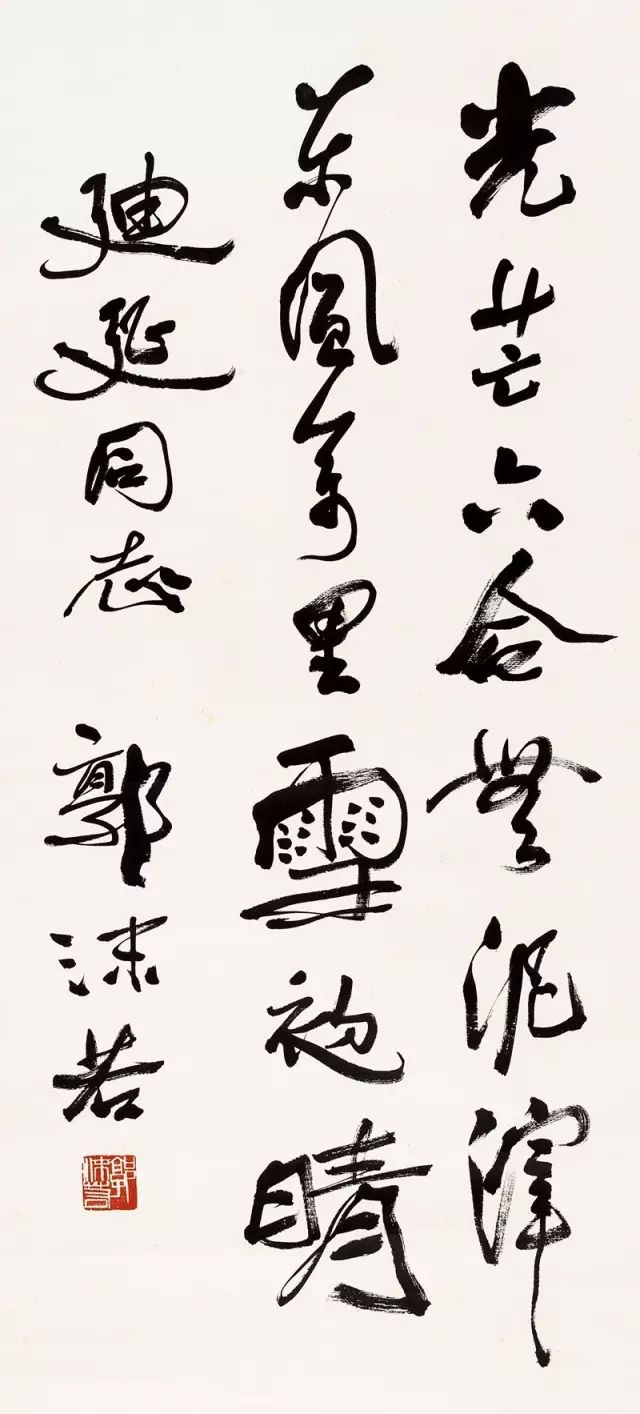 光芒六合無泥滓
東風萬里雪初晴
廸延同志 郭沫若
郭沫若